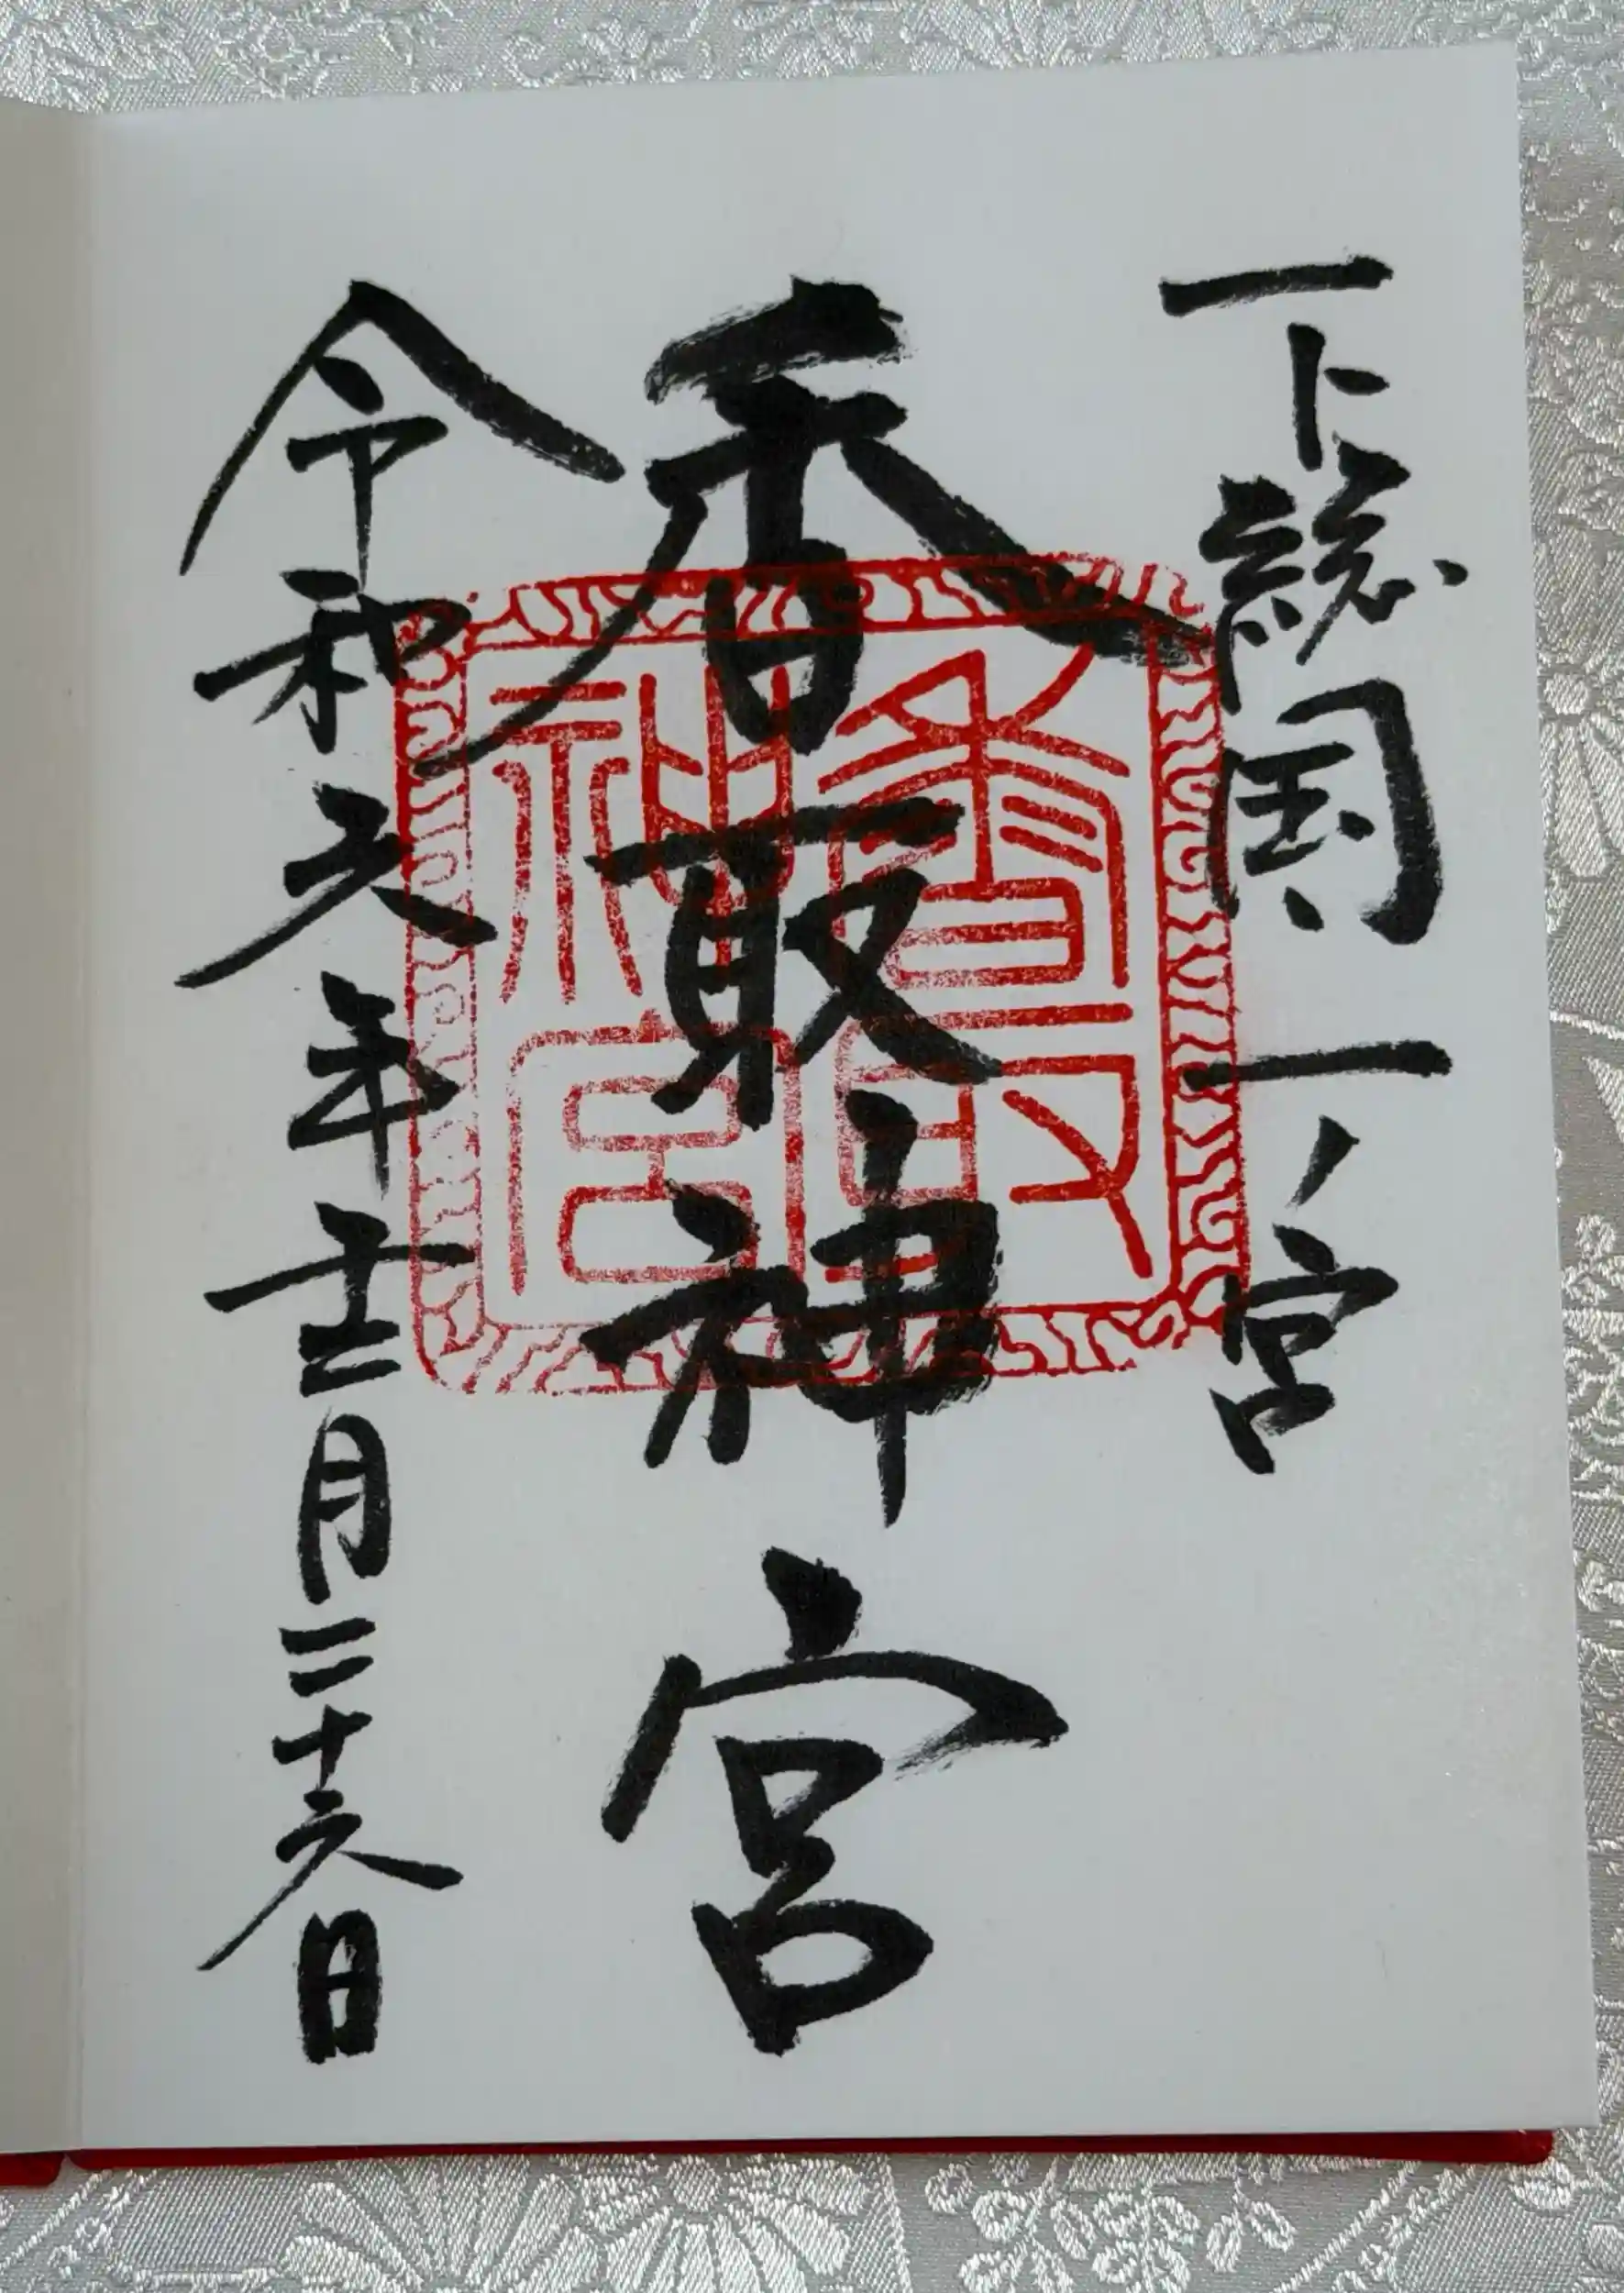 下総国一ノ宮
香取神宮
令和六年十二月二十六日
香取
神宮